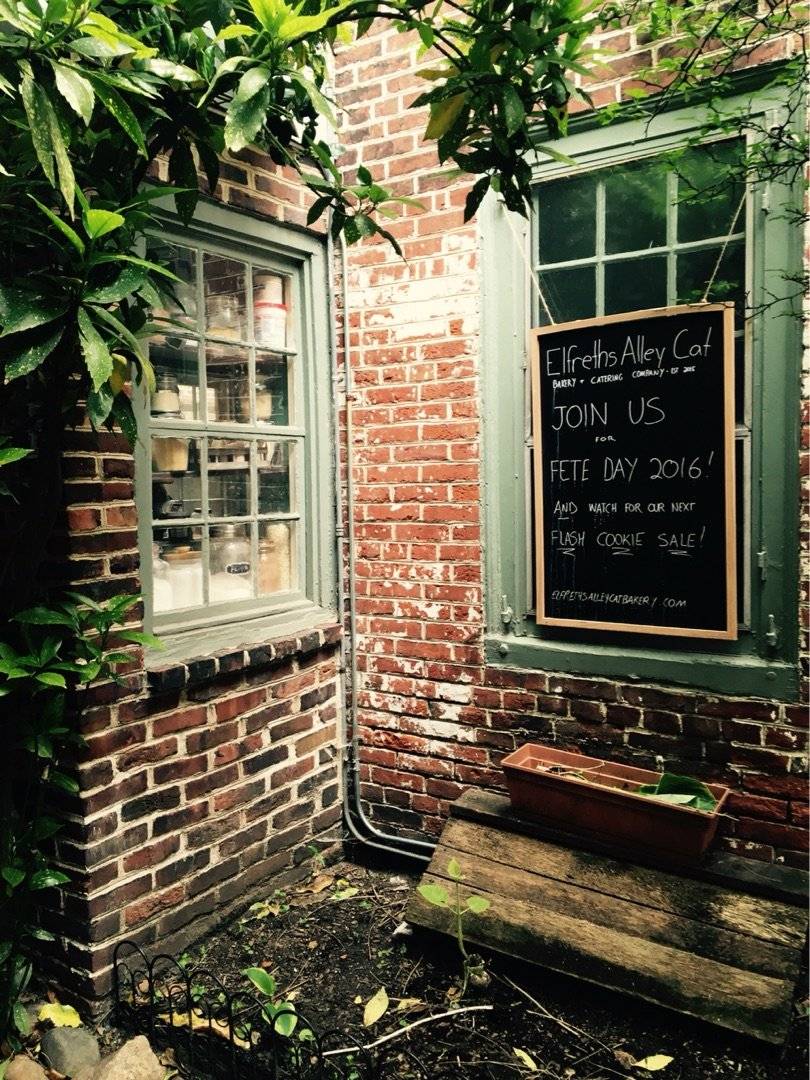 Elfreths Alley Cat
BAKERY + CATERING COMPANY · EST 2015
JOIN US
FOR
FETE DAY 2016!
AND WATCH FOR OUR NEXT
FLASH COOKIE SALE!
ELFRETHSALLEYCATBAKERY.COM